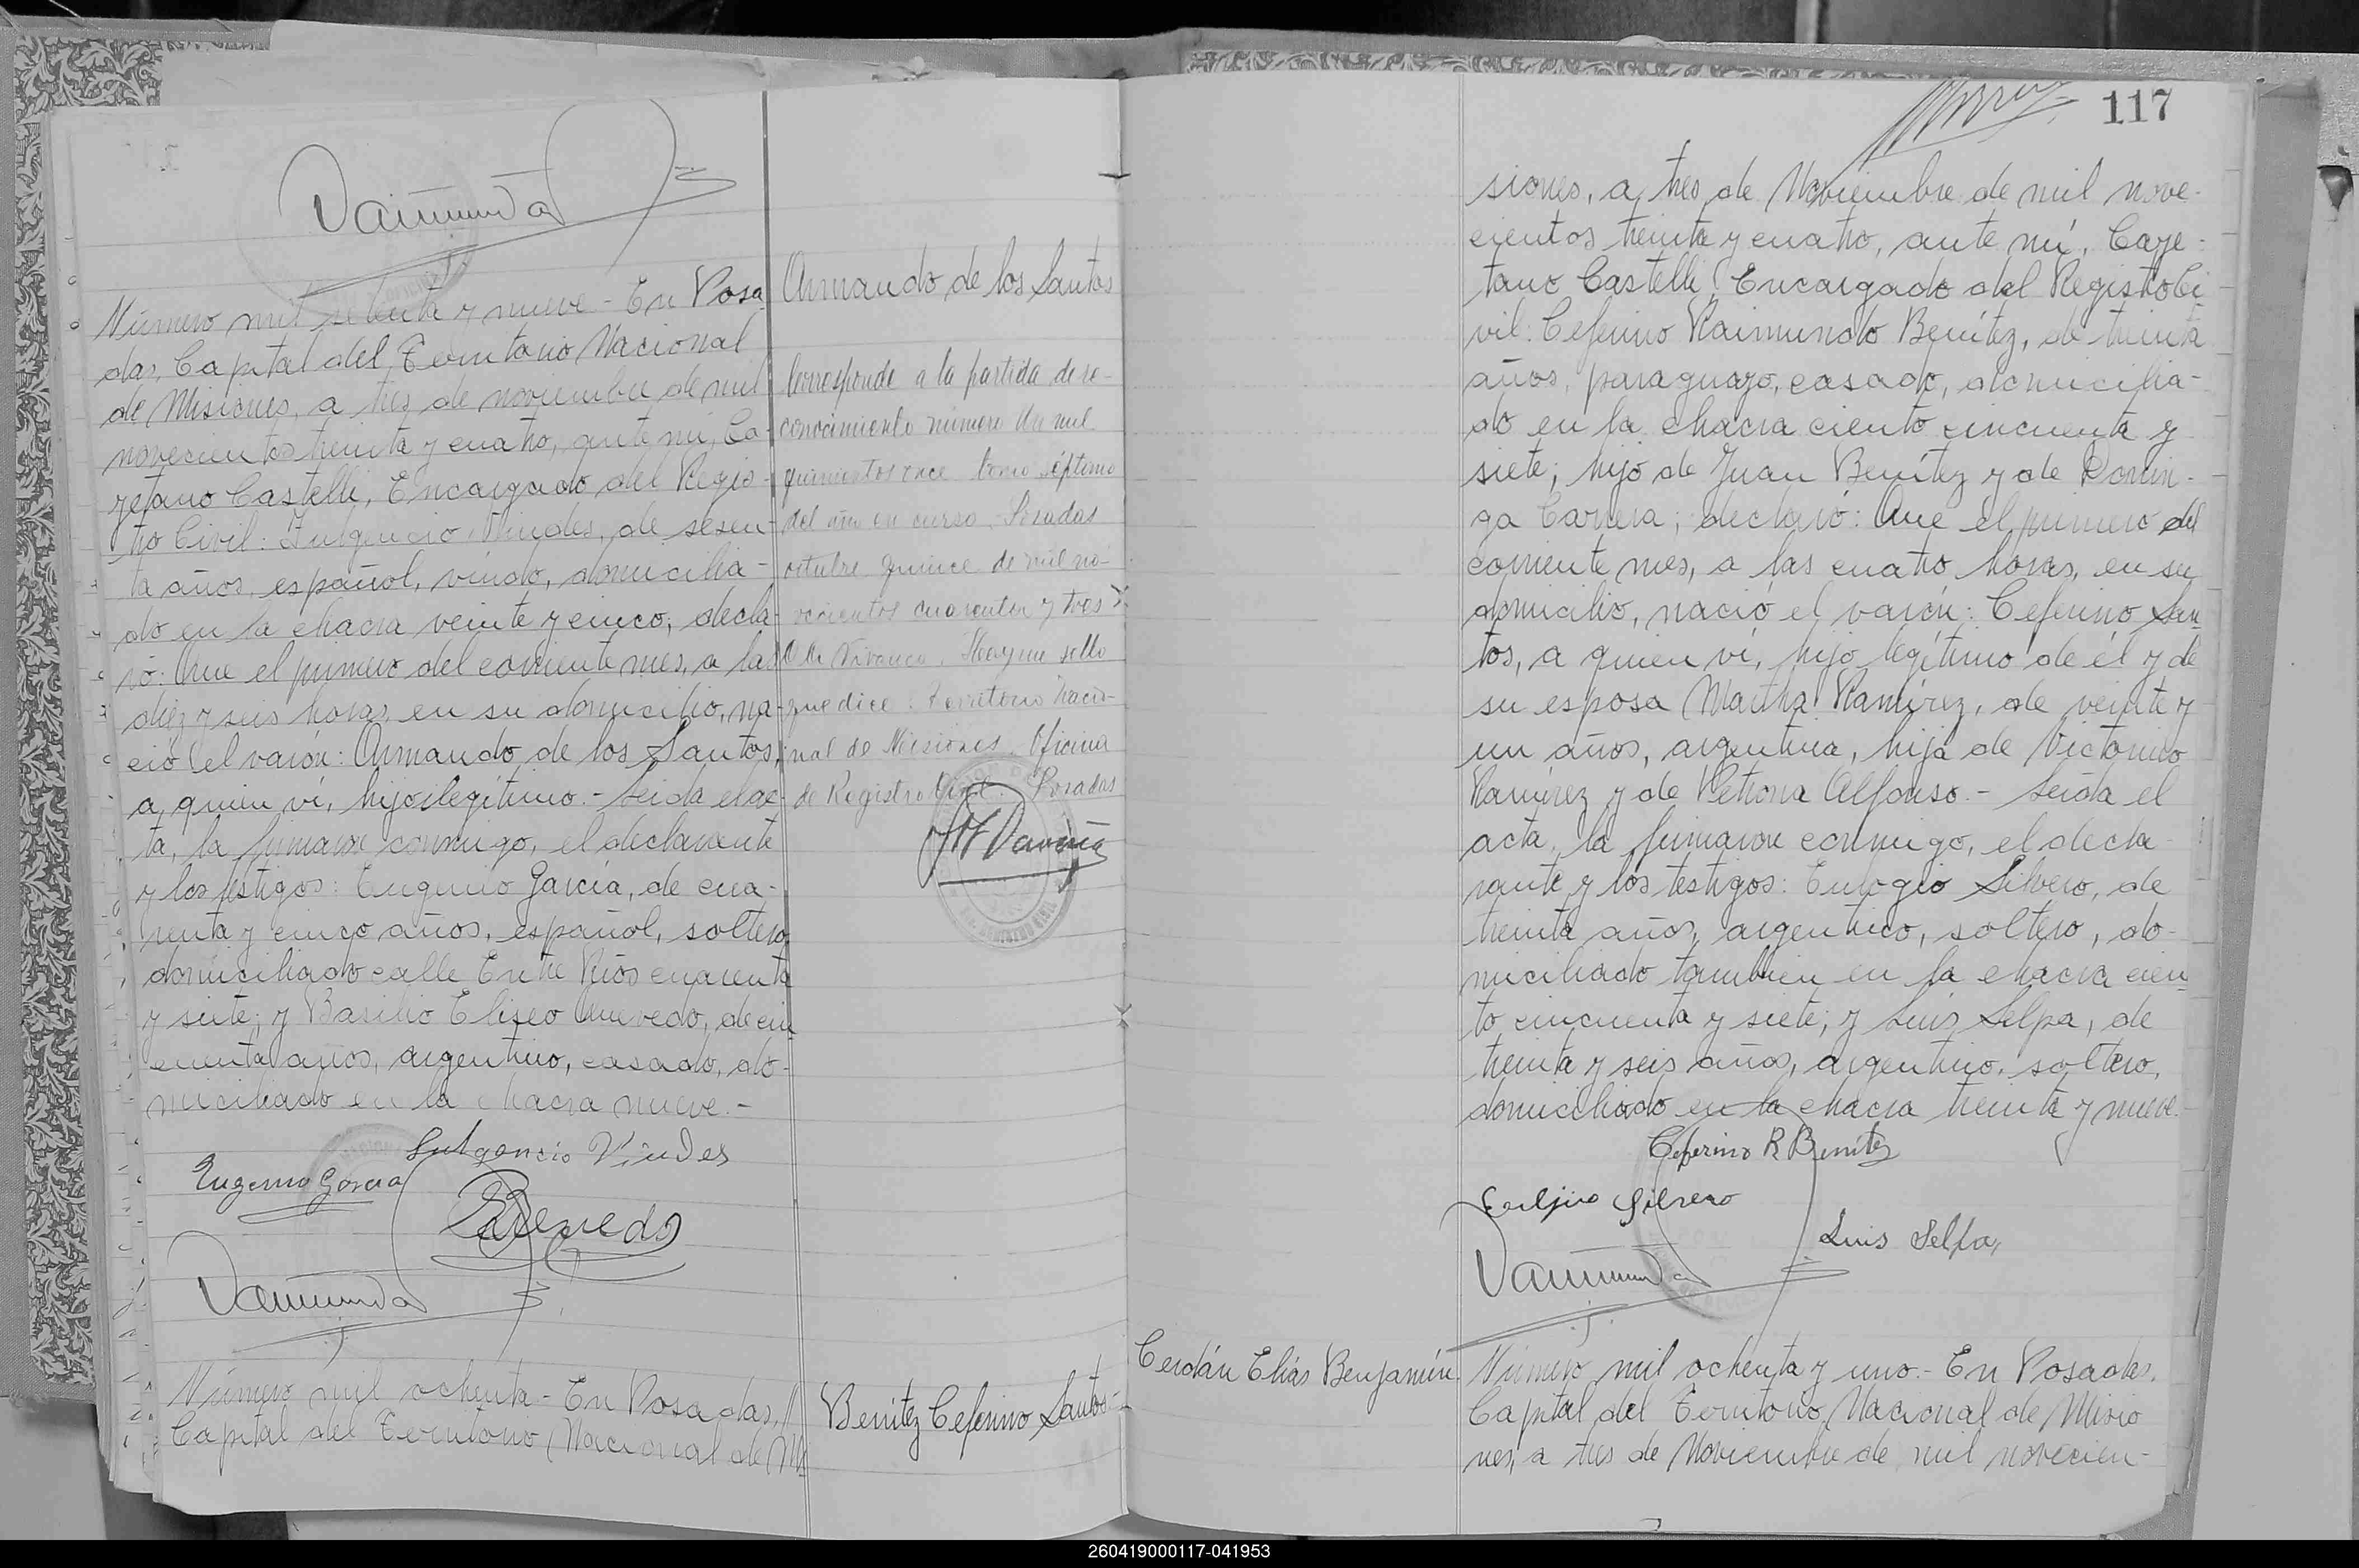 Número mil setenta y nueve.- En Posa-
das, Capital del Territorio Nacional
de Misiones, a tres de noviembre de mil
novecientos treinta y cuatro, ante mí, Ca-
yetano Castelli, Encargado del Regis-
tro Civil: Fulgencio Viudes, de sesen-
ta años, español, viudo, domicilia-
do en la chacra veinte y cinco, decla-
ró: Que el primero del corriente mes, a las
diez y seis horas, en su domicilio, na-
ció el varón: Armando de los Santos,
a quien ví, hijo ilegítimo.- Leída el ac-
ta, la firmaron conmigo, el declarante
y los testigos: Eugenio García, de cua-
renta y cinco años, español, soltero,
domiciliado calle Entre Ríos cuarenta
y siete; y Basilio Eliseo Quevedo, de cin
cuenta años, argentino, casado, do-
miciliado en la chacra nueve.-
Fulgencio Viudes
Eugenio Garcia
Quevedo
Número mil ochenta.- En Posadas,
Capital del Territorio Nacional de Mi
Armando de los Santos
Corresponde a la partida de re-
conocimiento número un mil
quinientos once tomo séptimo
del año en curso. Posadas
octubre quince de mil no-
vecientos cuarenta y tres
Hay un sello
que dice: Territorio Nacio-
nal de Misiones. Oficina
de Registro Civil. Posadas
Benítez Ceferino Santos
117
siones, a tres de Noviembre de mil nove-
cientos treinta y cuatro, ante mí, Caye-
tano Castelli, Encargado del Registro Ci-
vil: Ceferino Raimundo Benítez, de treinta
años, paraguayo, casado, domicilia-
do en la chacra ciento cincuenta y
siete; hijo de Juan Benítez y de Domin-
ga Carrera; declaró: Que el primero del
corriente mes, a las cuatro horas, en su
domicilio, nació el varón: Ceferino San
tos, a quien ví, hijo legítimo de él y de
su esposa Martha Ramírez, de veinte y
un años, argentina, hija de Victorino
Ramírez y de Petrona Alfonso.- Leída el
acta, la firmaron conmigo, el decla-
rante y los testigos: Eulogio Silvero, de
treinta años, argentino, soltero, do-
miciliado también en la chacra cien
to cincuenta y siete; y Luis Selpa, de
treinta y seis años, argentino, soltero,
domiciliado en la chacra treinta y nueve.-
Ceferino R Benitez
Silvero
Luis Selpa
Cerdán Elías Benjamín
Número mil ochenta y uno.- En Posadas,
Capital del Territorio Nacional de Misio
nes, a tres de Noviembre de mil novecien-
260419000117-041953